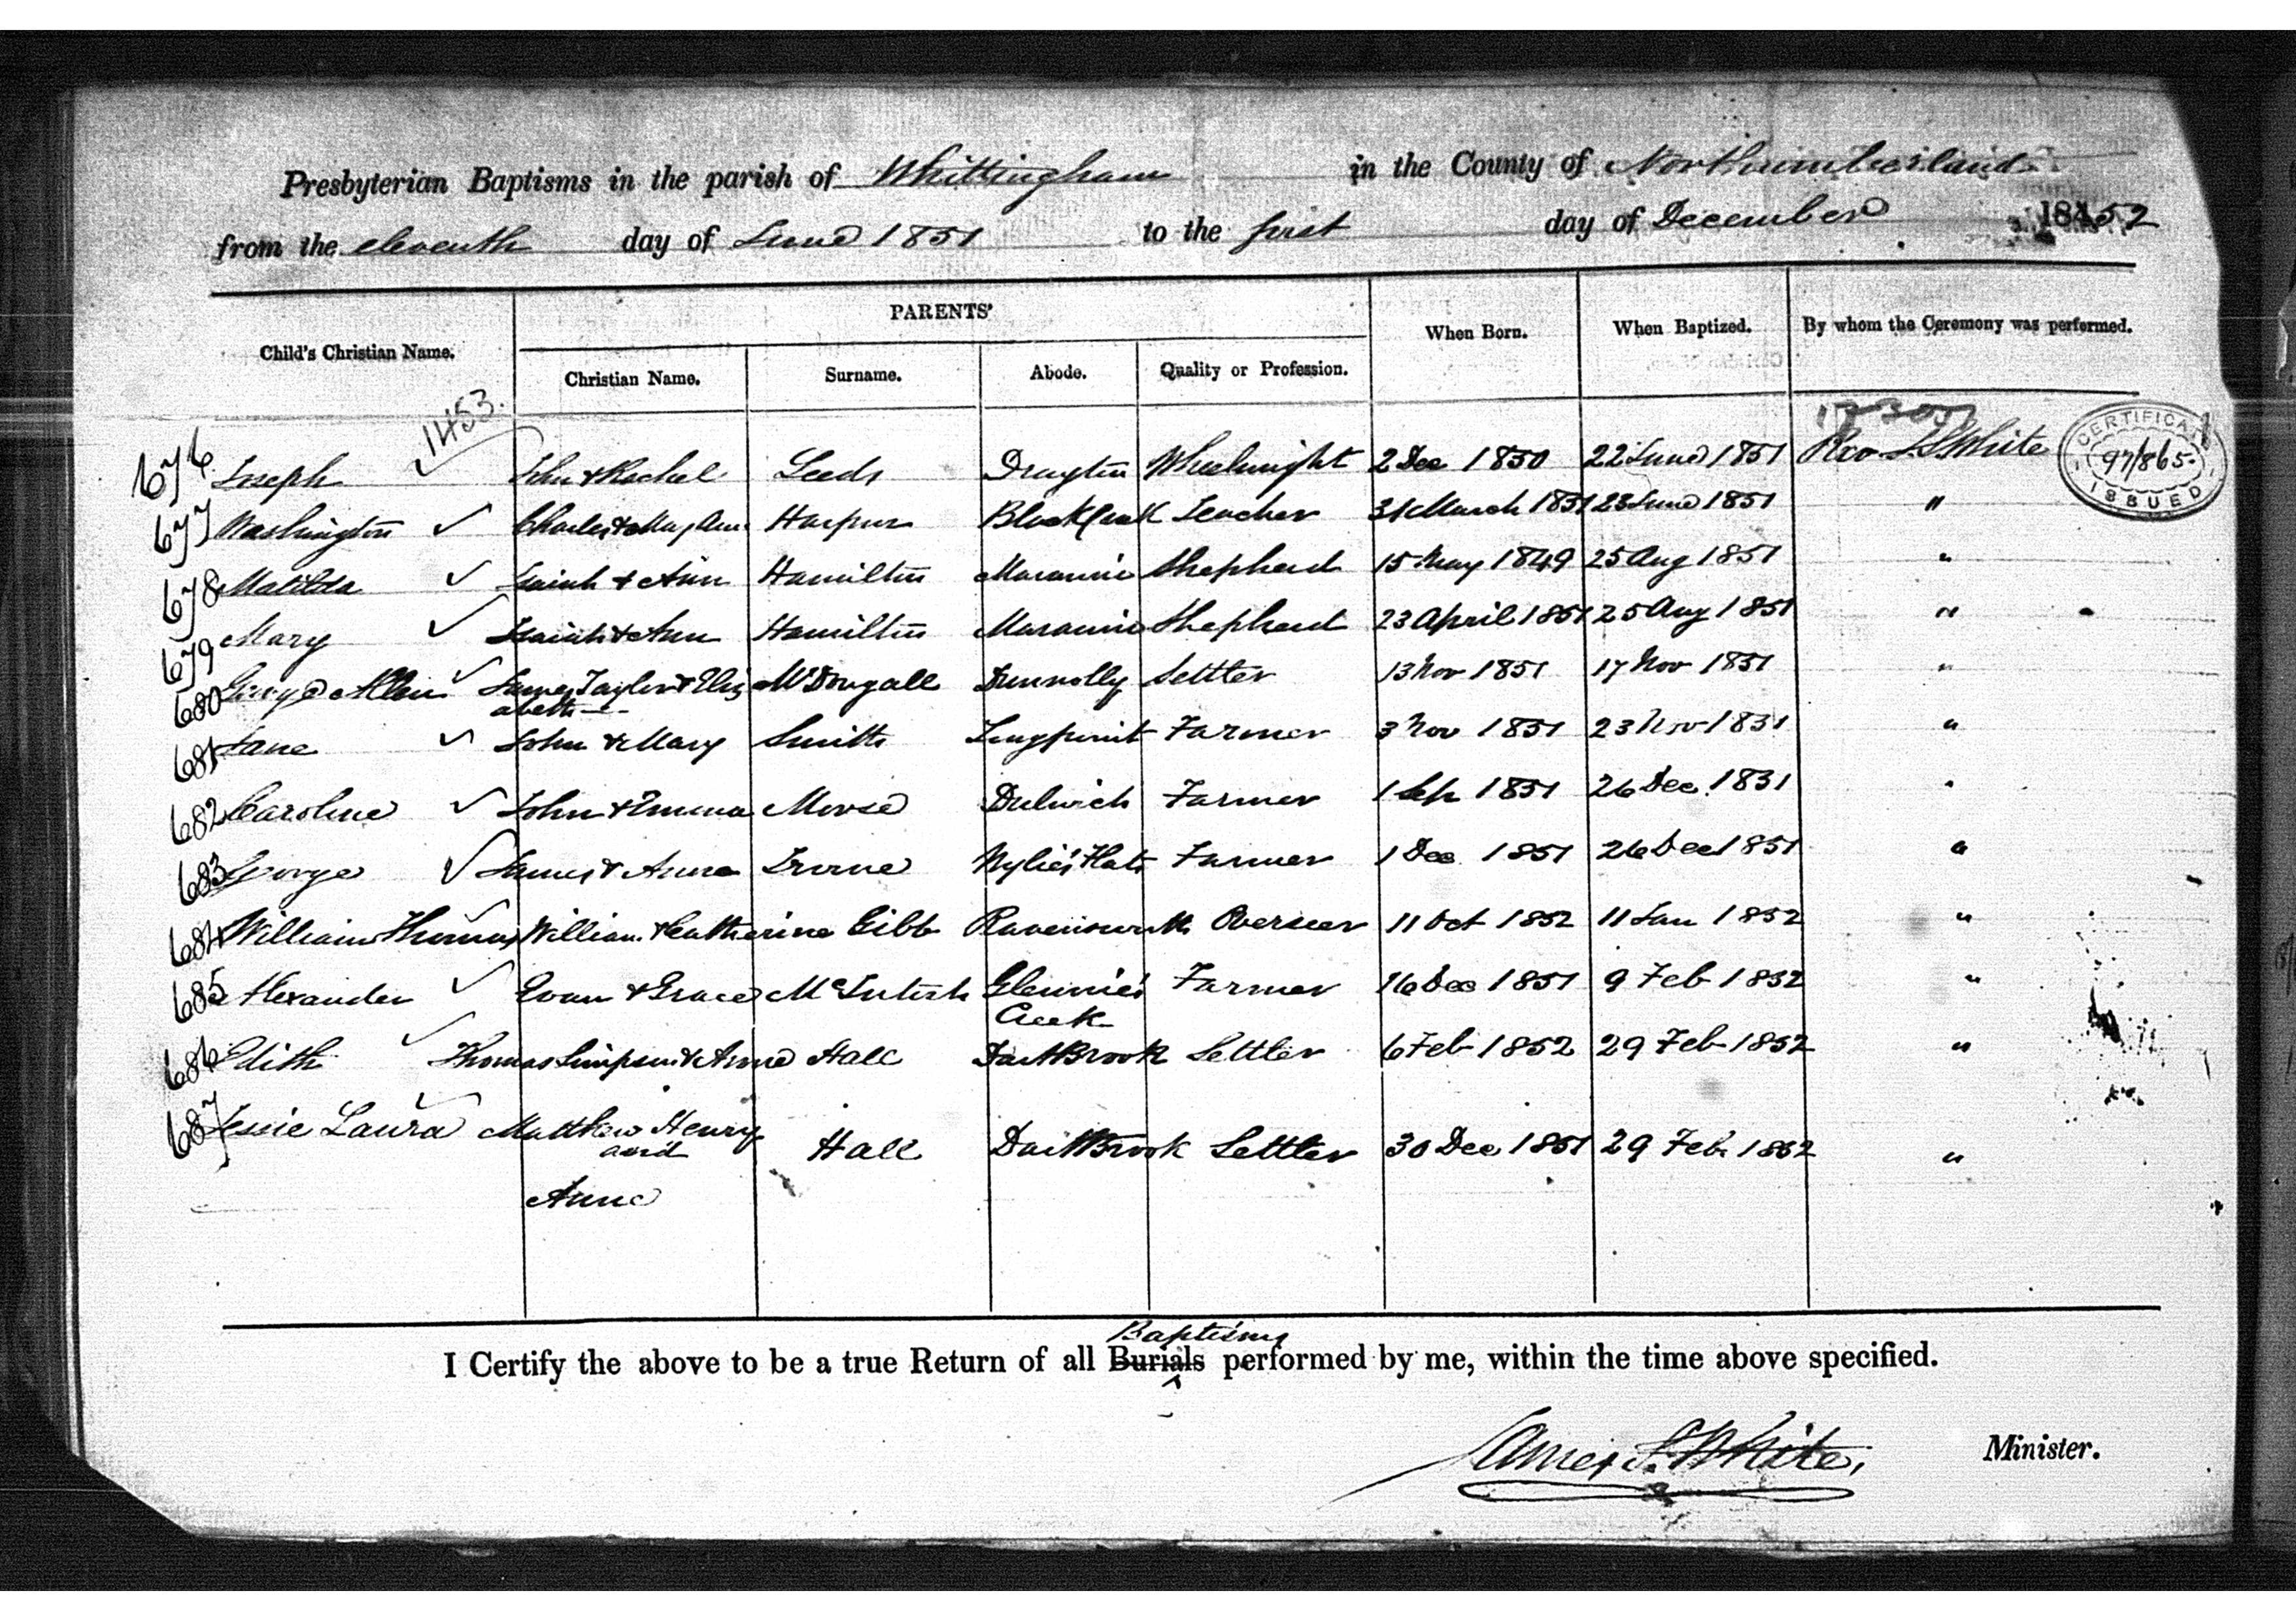 Presbyterian Baptisms in the parish of Whittingham in the County of Northumberland
from the eleventh day of June 1851 to the first day of December 1852
PARENTS'
Child's Christian Name. Christian Name. Surname. Abode. Quality or Profession. When Born. When Baptized. By whom the Ceremony was performed.
11453.
676 Joseph John & Rachel Leeds Drayton Wheelwright 2 Dec 1850 22 June 1851 Rev J. S. White
CERTIFICATE 97/865. ISSUED
677 Washington Charles & Mary Ann Harpur Teacher 31 March 1851 23 June 1851 "
678 Matilda Isaiah & Ann Hamilton Shepherd 15 May 1849 25 Aug 1851 "
679 Mary Isaiah & Ann Hamilton Shepherd 23 April 1851 25 Aug 1851 "
680 George Allen James Taylor & Eliz McDougall Dunnolly Settler 13 Nov 1851 17 Nov 1851 "
abeth
681 Jane John & Mary Smith Longpoint Farmer 3 Nov 1851 23 Nov 1851 "
682 Caroline John & Emma Morse Dulwich Farmer 1 Sep 1851 26 Dec 1851 "
683 George James & Anne Irvine Farmer 1 Dec 1851 26 Dec 1851 "
684 William Thomas William & Catherine Gibb Ravensworth Overseer 11 Oct 1852 11 Jan 1852 "
685 Alexander Evan & Grace McIntosh Glennies Farmer 16 Dec 1851 9 Feb 1852 "
Creek
686 Edith Thomas Simpson & Anne Hall DartBrook Settler 6 Feb 1852 29 Feb 1852 "
687 Jessie Laura Matthew Henry
and Hall DartBrook Settler 30 Dec 1851 29 Feb 1852 "
Anne
Baptisms
I Certify the above to be a true Return of all Burials performed by me, within the time above specified.
James S. White, Minister.